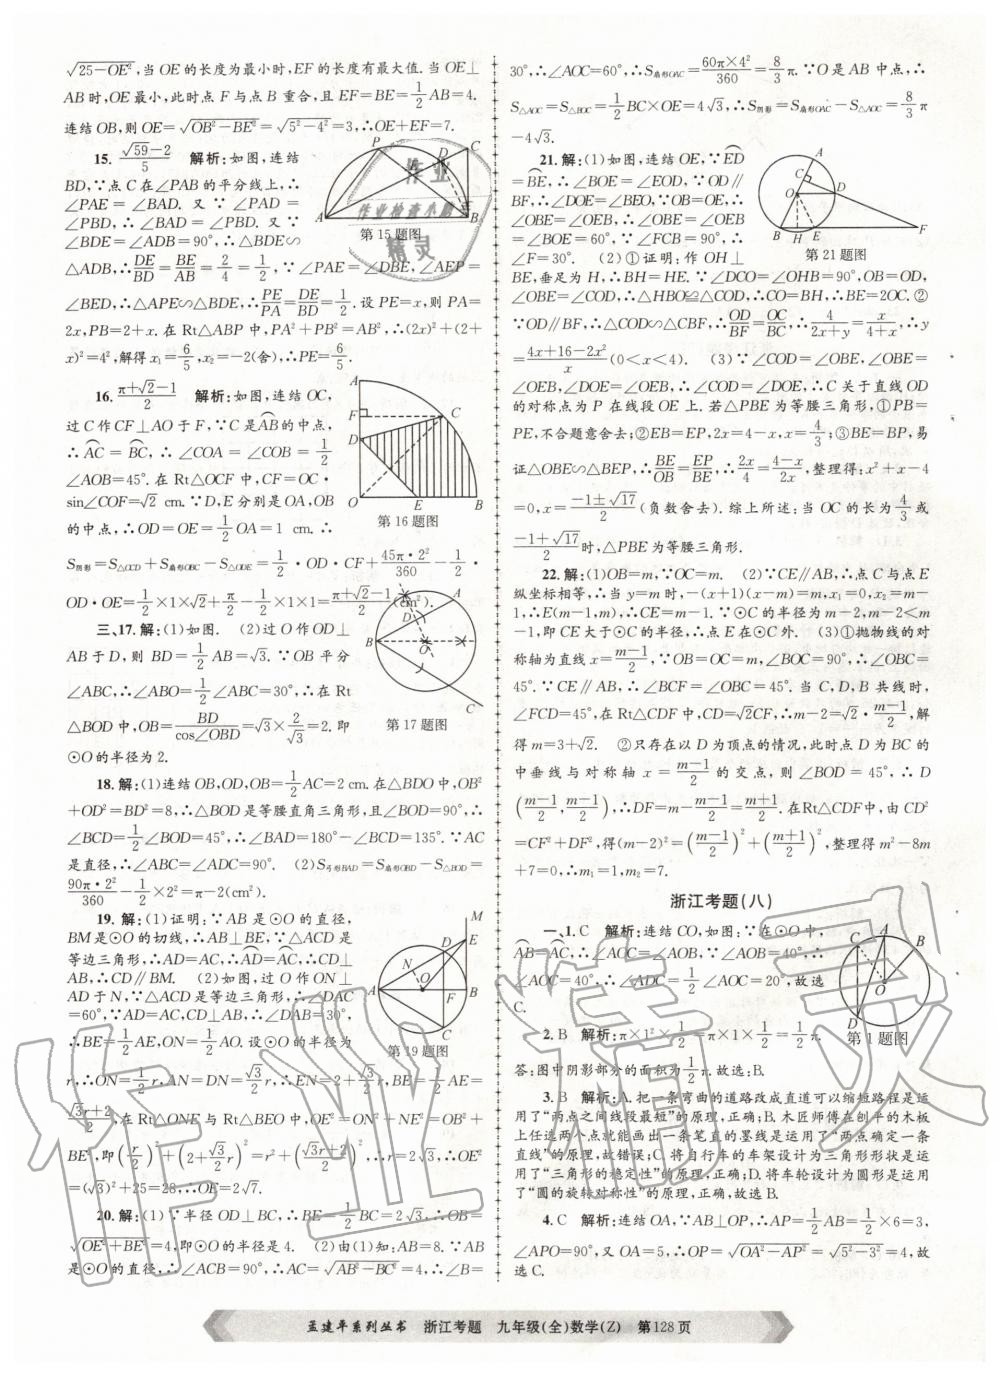 √25－OE²,当OE的长度为最小时,EF的长度有最大值.当OE⊥
AB时,OE最小,此时点F与点B重合,且EF=BE=1/2AB=4.
连结OB,则OE=√OB²－BE²=√5²－4²=3,∴OE+EF=7.
15. (√59－2)/5 解析:如图,连结
BD,∵点C在∠PAB的平分线上,∴
∠PAE=∠BAD. 又∵∠PAD=
∠PBD,∴∠BAD=∠PBD. 又∵
∠BDE=∠ADB=90°,∴△BDE∽
△ADB,∴DE/BD=BE/AB=2/4=1/2,∵∠PAE=∠DBE,∠AEP=
第15题图
∠BED,∴△APE∽△BDE,∴PE/PA=DE/BD=1/2.设PE=x,则PA=
2x,PB=2+x.在Rt△ABP中,PA²+PB²=AB²,∴(2x)²+(2+
x)²=4²,解得x₁=6/5,x₂=－2(舍),∴PE=6/5.
16. (π+√2－1)/2 解析:如图,连结OC,
过C作CF⊥AO于F,∵C是AB的中点,
∴AC=BC,∴∠COA=∠COB=1/2
∠AOB=45°.在Rt△OCF中,CF=OC·
sin∠COF=√2 cm.∵D,E分别是OA,OB
的中点,∴OD=OE=1/2OA=1 cm.∴
第16题图
S阴影=S△OCD+S扇形OBC－S△ODE=1/2·OD·CF+45π·2²/360－1/2·
OD·OE=1/2×1×√2+π/2－1/2×1×1=(π+√2－1)/2(cm²).
三、17.解:(1)如图. (2)过O作OD⊥
AB于D,则BD=1/2AB=√3.∵OB平分
∠ABC,∴∠ABO=1/2∠ABC=30°,∴在Rt
△BOD中,OB=BD/cos∠OBD=√3×2/√3=2.即
⊙O的半径为2.
第17题图
18.解:(1)连结OB,OD,OB=1/2AC=2 cm.在△BDO中,OB²
+OD²=BD²=8,∴△BOD是等腰直角三角形,且∠BOD=90°,∴
∠BCD=1/2∠BOD=45°,∴∠BAD=180°－∠BCD=135°.∵AC
是直径,∴∠ABC=∠ADC=90°. (2)S弓形BAD=S扇形OBD－S△BOD=
90π·2²/360－1/2×2²=π－2(cm²).
19.解:(1)证明:∵AB是⊙O的直径,
BM是⊙O的切线,∴AB⊥BE,∵△ACD是
等边三角形,∴AD=AC,∴AD=AC,∴
AB⊥CD,∴CD∥BM. (2)如图,过O作ON⊥
AD于N,∵△ACD是等边三角形,∴∠DAC
=60°,∵AD=AC,CD⊥AB,∴∠DAB=30°,
∴BE=1/2AE,ON=1/2AO.设⊙O的半径为
第19题图
r,∴ON=1/2r,AN=DN=√3/2r,∴EN=2+√3/2r,BE=1/2AE=
(√3r+2)/2,在Rt△ONE与Rt△BEO中,OE²=ON²+NE²=OB²+
BE²,即(r/2)²+(2+√3/2r)²=r²+(√3r+2/2)²,∴r=2√3,∴OE²
=(√3)²+25=28,∴OE=2√7.
20.解:(1)∵半径OD⊥BC,∴BE=1/2BC=2√3,∴OB=
√OE²+BE²=4,即⊙O的半径是4. (2)由(1)知:AB=8.∵AB
是⊙O的直径,∴∠ACB=90°,∴AC=√AB²－BC²=4,∴∠B=
30°,∴∠AOC=60°,∴S扇形OAC=60π×4²/360=8/3π.∵O是AB中点,∴
S△AOC=S△BOC=1/2BC×OE=4√3,∴S阴影=S扇形OAC－S△AOC=8/3π
－4√3.
21.解:(1)如图,连结OE,∵ED
=BE,∴∠BOE=∠EOD,∵OD∥
BF,∴∠DOE=∠BEO,∵OB=OE,∴
∠OBE=∠OEB,∴∠OBE=∠OEB
=∠BOE=60°,∵∠FCB=90°,∴
∠F=30°. (2)①证明:作OH⊥
第21题图
BE,垂足为H,∴BH=HE. ∵∠DCO=∠OHB=90°,OB=OD,
∠OBE=∠COD,∴△HBO≌△CDO,∴CO=BH,∴BE=2OC.②
∵OD∥BF,∴△COD∽△CBF,∴OD/BF=OC/BC,∴4/(2x+y)=x/(4+x),∴y
=(4x+16－2x²)/x(0<x<4). (3)∵∠COD=∠OBE,∠OBE=
∠OEB,∠DOE=∠OEB,∴∠COD=∠DOE,∴C关于直线OD
的对称点为P在线段OE上.若△PBE为等腰三角形,①PB=
PE,不合题意舍去;②EB=EP,2x=4－x,x=4/3;③BE=BP,易
证△OBE∽△BEP,∴BE/OB=EP/BE,∴2x/4=(4－x)/2x,整理得:x²+x－4
=0,x=(－1±√17)/2(负数舍去).综上所述:当OC的长为4/3或
(－1+√17)/2时,△PBE为等腰三角形.
22.解:(1)OB=m,∵OC=m. (2)∵CE∥AB,∴点C与点E
纵坐标相等,∴当y=m时,－(x+1)(x－m)=m,x₁=0,x₂=m
－1,∴E(m－1,m),∴CE=m－1.∵⊙C的半径为m－2,m－2<m
－1,即CE大于⊙C的半径,∴点E在⊙C外. (3)①抛物线的对
称轴为直线x=(m－1)/2,∵OB=OC=m,∠BOC=90°,∴∠OBC=
45°.∵CE∥AB,∴∠BCF=∠OBC=45°. 当C,D,B共线时,
∠FCD=45°,在Rt△CDF中,CD=√2CF,∴m－2=√2·(m－1)/2,解
得m=3+√2. ②只存在以D为顶点的情况,此时点D为BC的
中垂线与对称轴x=(m－1)/2的交点,则∠BOD=45°,∴D
((m－1)/2,(m－1)/2),∴DF=m－(m－1)/2=(m+1)/2.在Rt△CDF中,由CD²
=CF²+DF²,得(m－2)²=((m－1)/2)²+((m+1)/2)²,整理得m²－8m
+7=0,∴m₁=1,m₂=7.
浙江考题(八)
一、1.C 解析:连结CO,如图:∵在⊙O中,
AB=AC,∴∠AOC=∠AOB,∵∠AOB=40°,∴
∠AOC=40°,∴∠ADC=1/2∠AOC=20°,故选
C.
第1题图
2.B 解析:π×1²×1/2=π×1×1/2=1/2π.
答:图中阴影部分的面积为1/2π.故选B.
3.B 解析:A.把一条弯曲的道路改成直道可以缩短路程是运
用了“两点之间线段最短”的原理,正确;B.木匠师傅在刨平的木板
上任选两个点就能画出一条笔直的墨线是运用了“两点确定一条
直线”的原理,故错误;C.将自行车的车架设计为三角形形状是运
用了“三角形的稳定性”的原理,正确;D.将车轮设计为圆形是运用
了“圆的旋转对称性”的原理,正确.故选B.
4.C 解析:连结OA,∵AB⊥OP,∴AP=1/2AB=1/2×6=3,
∠APO=90°,又OA=5,∴OP=√OA²－AP²=√5²－3²=4,故
选C.
孟建平系列丛书 浙江考题 九年级(全)数学(Z) 第128页